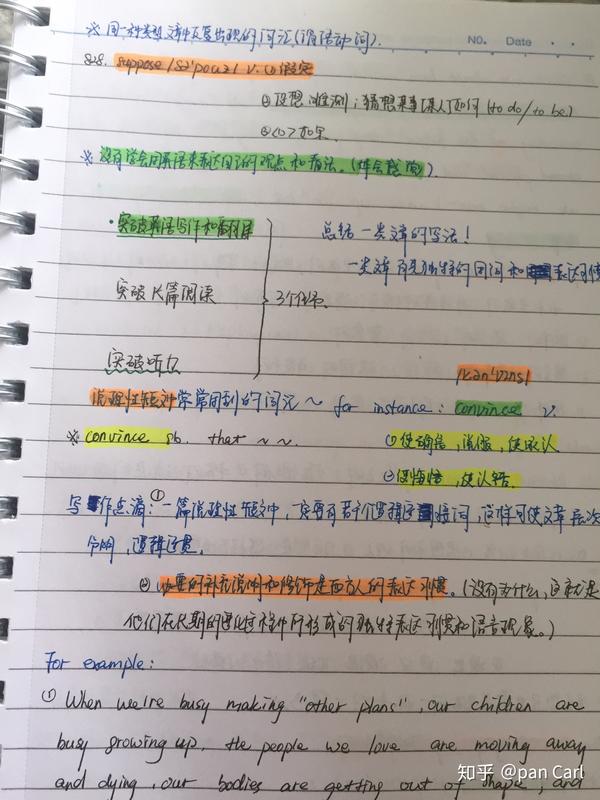 ※ 同一种类型文章中反复出现的词汇(谓语动词).
NO. Date
828. suppose /sə'pəuz/ v. ①假定
②设想,推测;猜想某事[某人]如何 (to do/to be)
③如果.
※ 没有学会用英语来表达自己的观点和看法。(体会感觉).
·突破英语写作和翻译
总结一类文章的写法!
一类文章有其独特的用词和表达习惯
突破长篇阅读
3个任务.
突破听力
/kən'vɪns/
说理性短文常常用到的词汇~ for instance: convince v.
※ convince sb. that ~~. ①使确信,说服,使承认
②使悔悟,使认错
写作点滴:①一篇说理性短文中,一定要有若干个逻辑连接词,这样可使文章层次
分明,逻辑连贯.
②必要的补充说明和修饰是西方人的表达习惯。(没有为什么,这就是
他们在长期的进化过程中所形成的独特表达习惯和语言现象。)
For example:
① When we're busy making "other plans", our children are
busy growing up. the people we love are moving away
and dying, our bodies are getting out of shape, and
知乎 @pan Carl